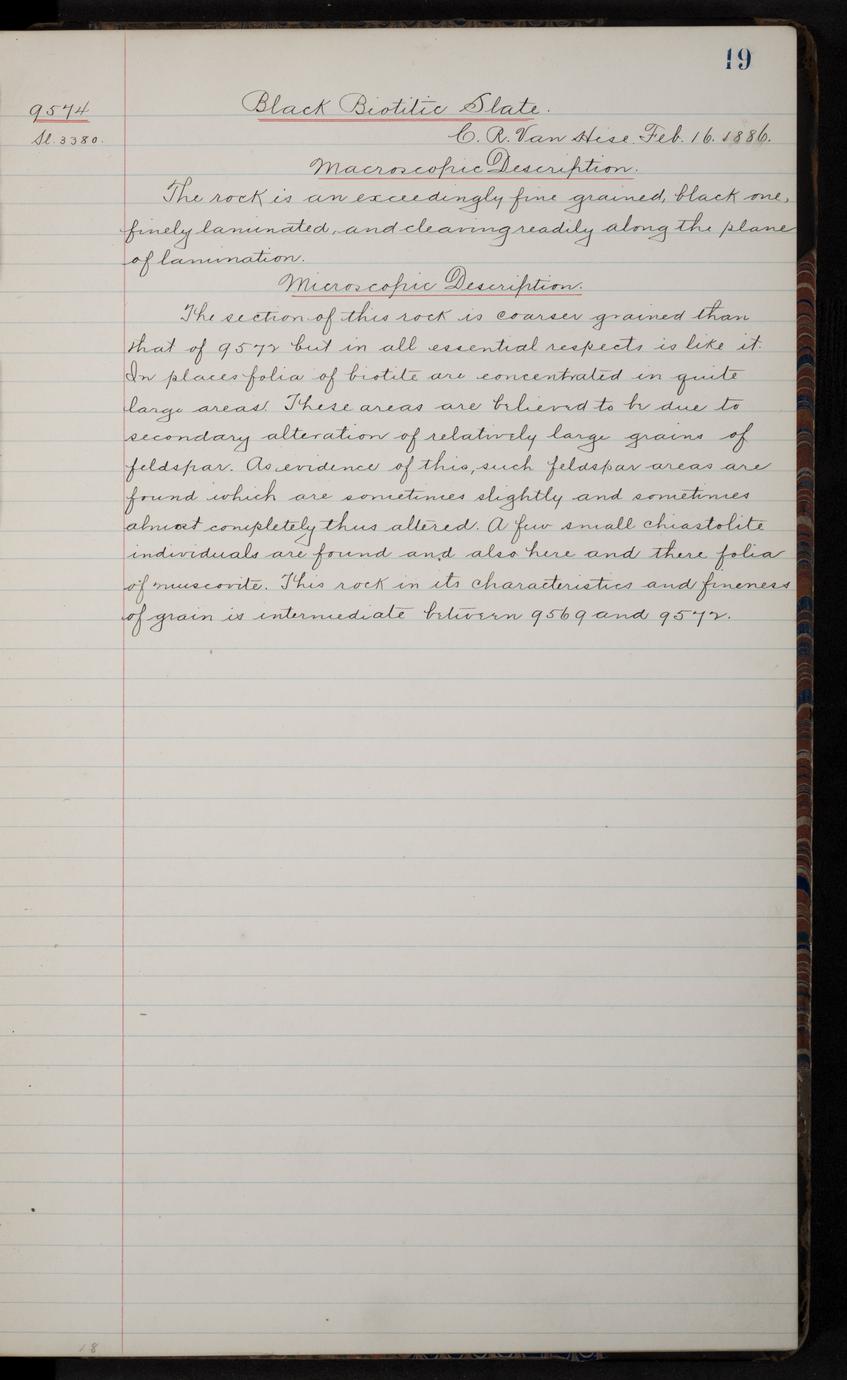 19
9574
Sl. 3380.
Black Biotitic Slate.
C. R. Van Hise. Feb. 16. 1886.
Macroscopic Description.
The rock is an exceedingly fine grained, black one,
finely laminated, and cleaving readily along the plane
of lamination.
Microscopic Description.
The section of this rock is coarser grained than
that of 9572 but in all essential respects is like it.
In places folia of biotite are concentrated in quite
large areas. These areas are believed to be due to
secondary alteration of relatively large grains of
feldspar. As evidence of this, such feldspar areas are
found which are sometimes slightly and sometimes
almost completely thus altered. A few small chiastolite
individuals are found and also here and there folia
of muscovite. This rock in its characteristics and fineness
of grain is intermediate between 9569 and 9572.
18